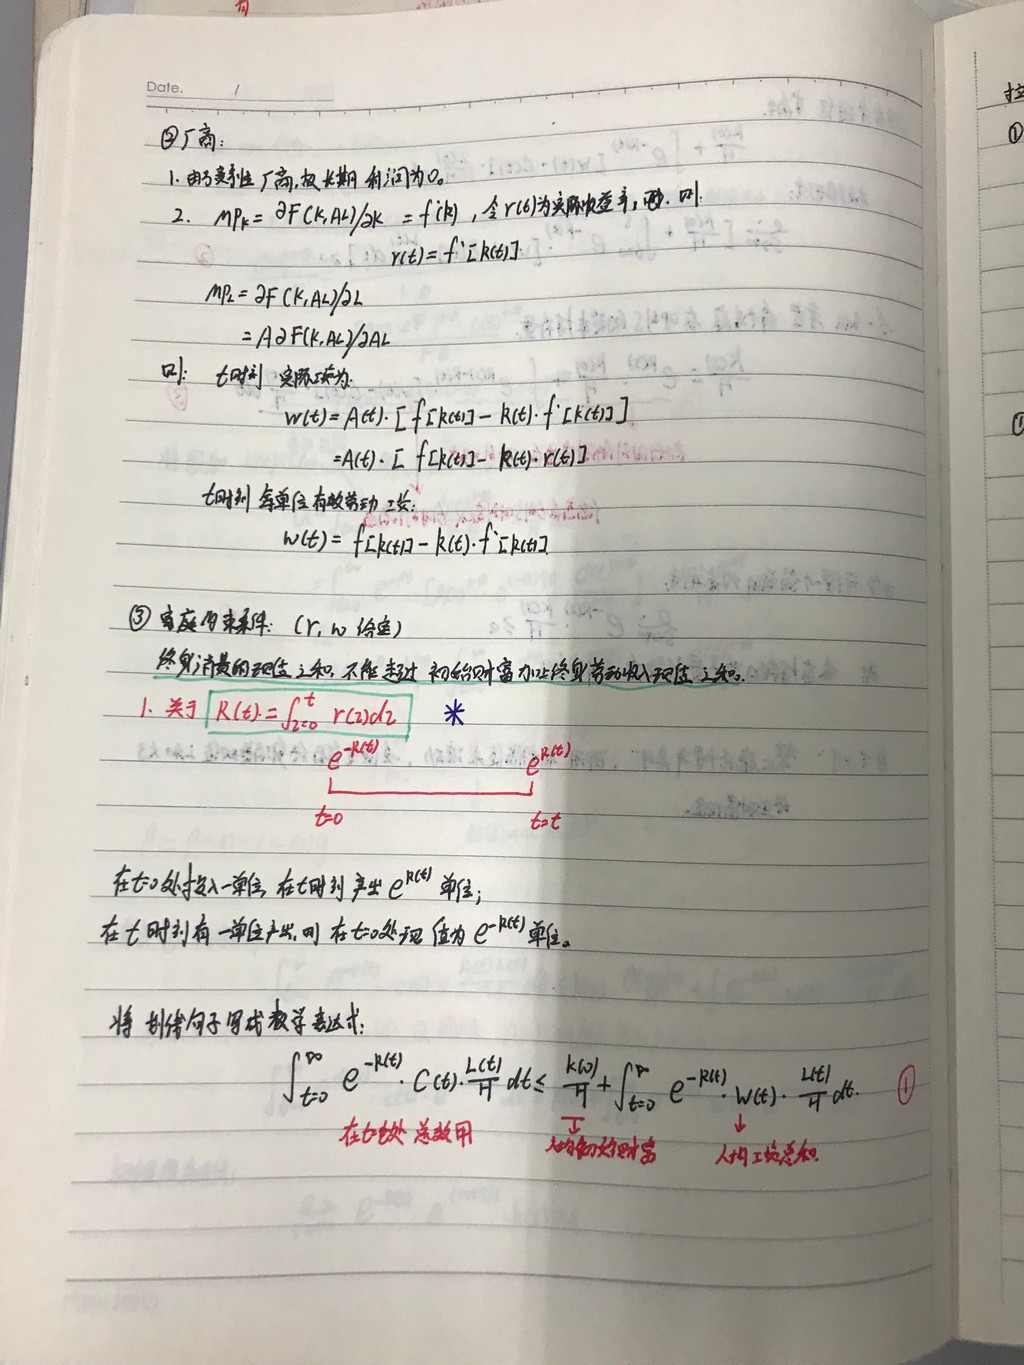 Date. /
②厂商:
1. 由于竞争性厂商,故长期利润为0。
2. MPk = ∂F(K,AL)/∂K = f'(k), 令r(t)为实际收益率, 则:
r(t) = f'[k(t)]
MPL = ∂F(K,AL)/∂L
= A∂F(K,AL)/∂AL
则: t时刻 实际工资为:
W(t) = A(t)·[f[k(t)] - k(t)·f'[k(t)]]
= A(t)·[f[k(t)] - k(t)·r(t)]
t时刻 每单位有效劳动工资:
w(t) = f[k(t)] - k(t)·f'[k(t)]
③ 家庭约束条件: (r, w 给定)
终身消费的现值之和 不能超过 初始财富加上终身劳动收入现值之和.
1. 关于 R(t) = ∫_{z=0}^{t} r(z)dz *
e^{-R(t)} e^{R(t)}
t=0 t=t
在t=0处投入一单位, 在t时刻产出 e^{R(t)} 单位;
在t时刻有一单位产出, 则在t=0处现值为 e^{-R(t)} 单位。
将划线句子写成数学表达式:
∫_{t=0}^{∞} e^{-R(t)}·C(t)·L(t)/H dt ≤ K(0)/H + ∫_{t=0}^{∞} e^{-R(t)}·W(t)·L(t)/H dt. ①
在t=0处 总效用 人均初始财富 人均工资总和
拉
①
①